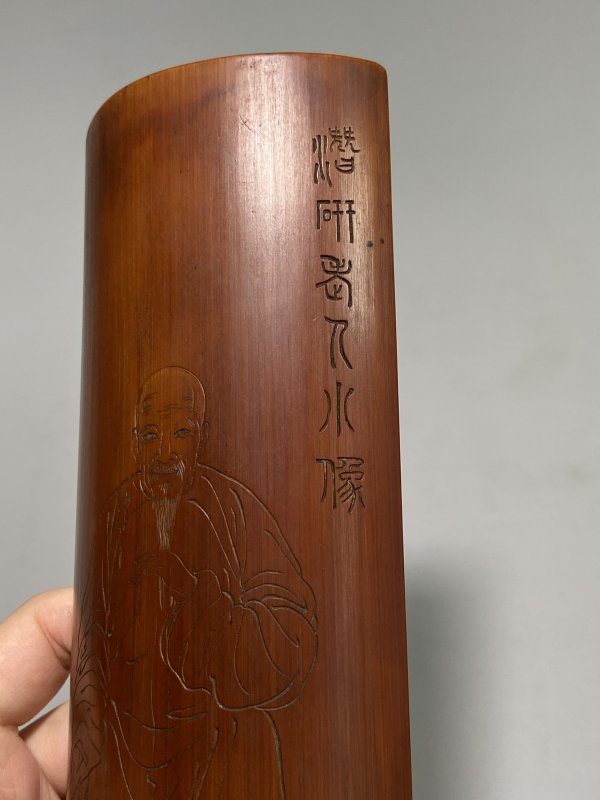 潛研老人小像